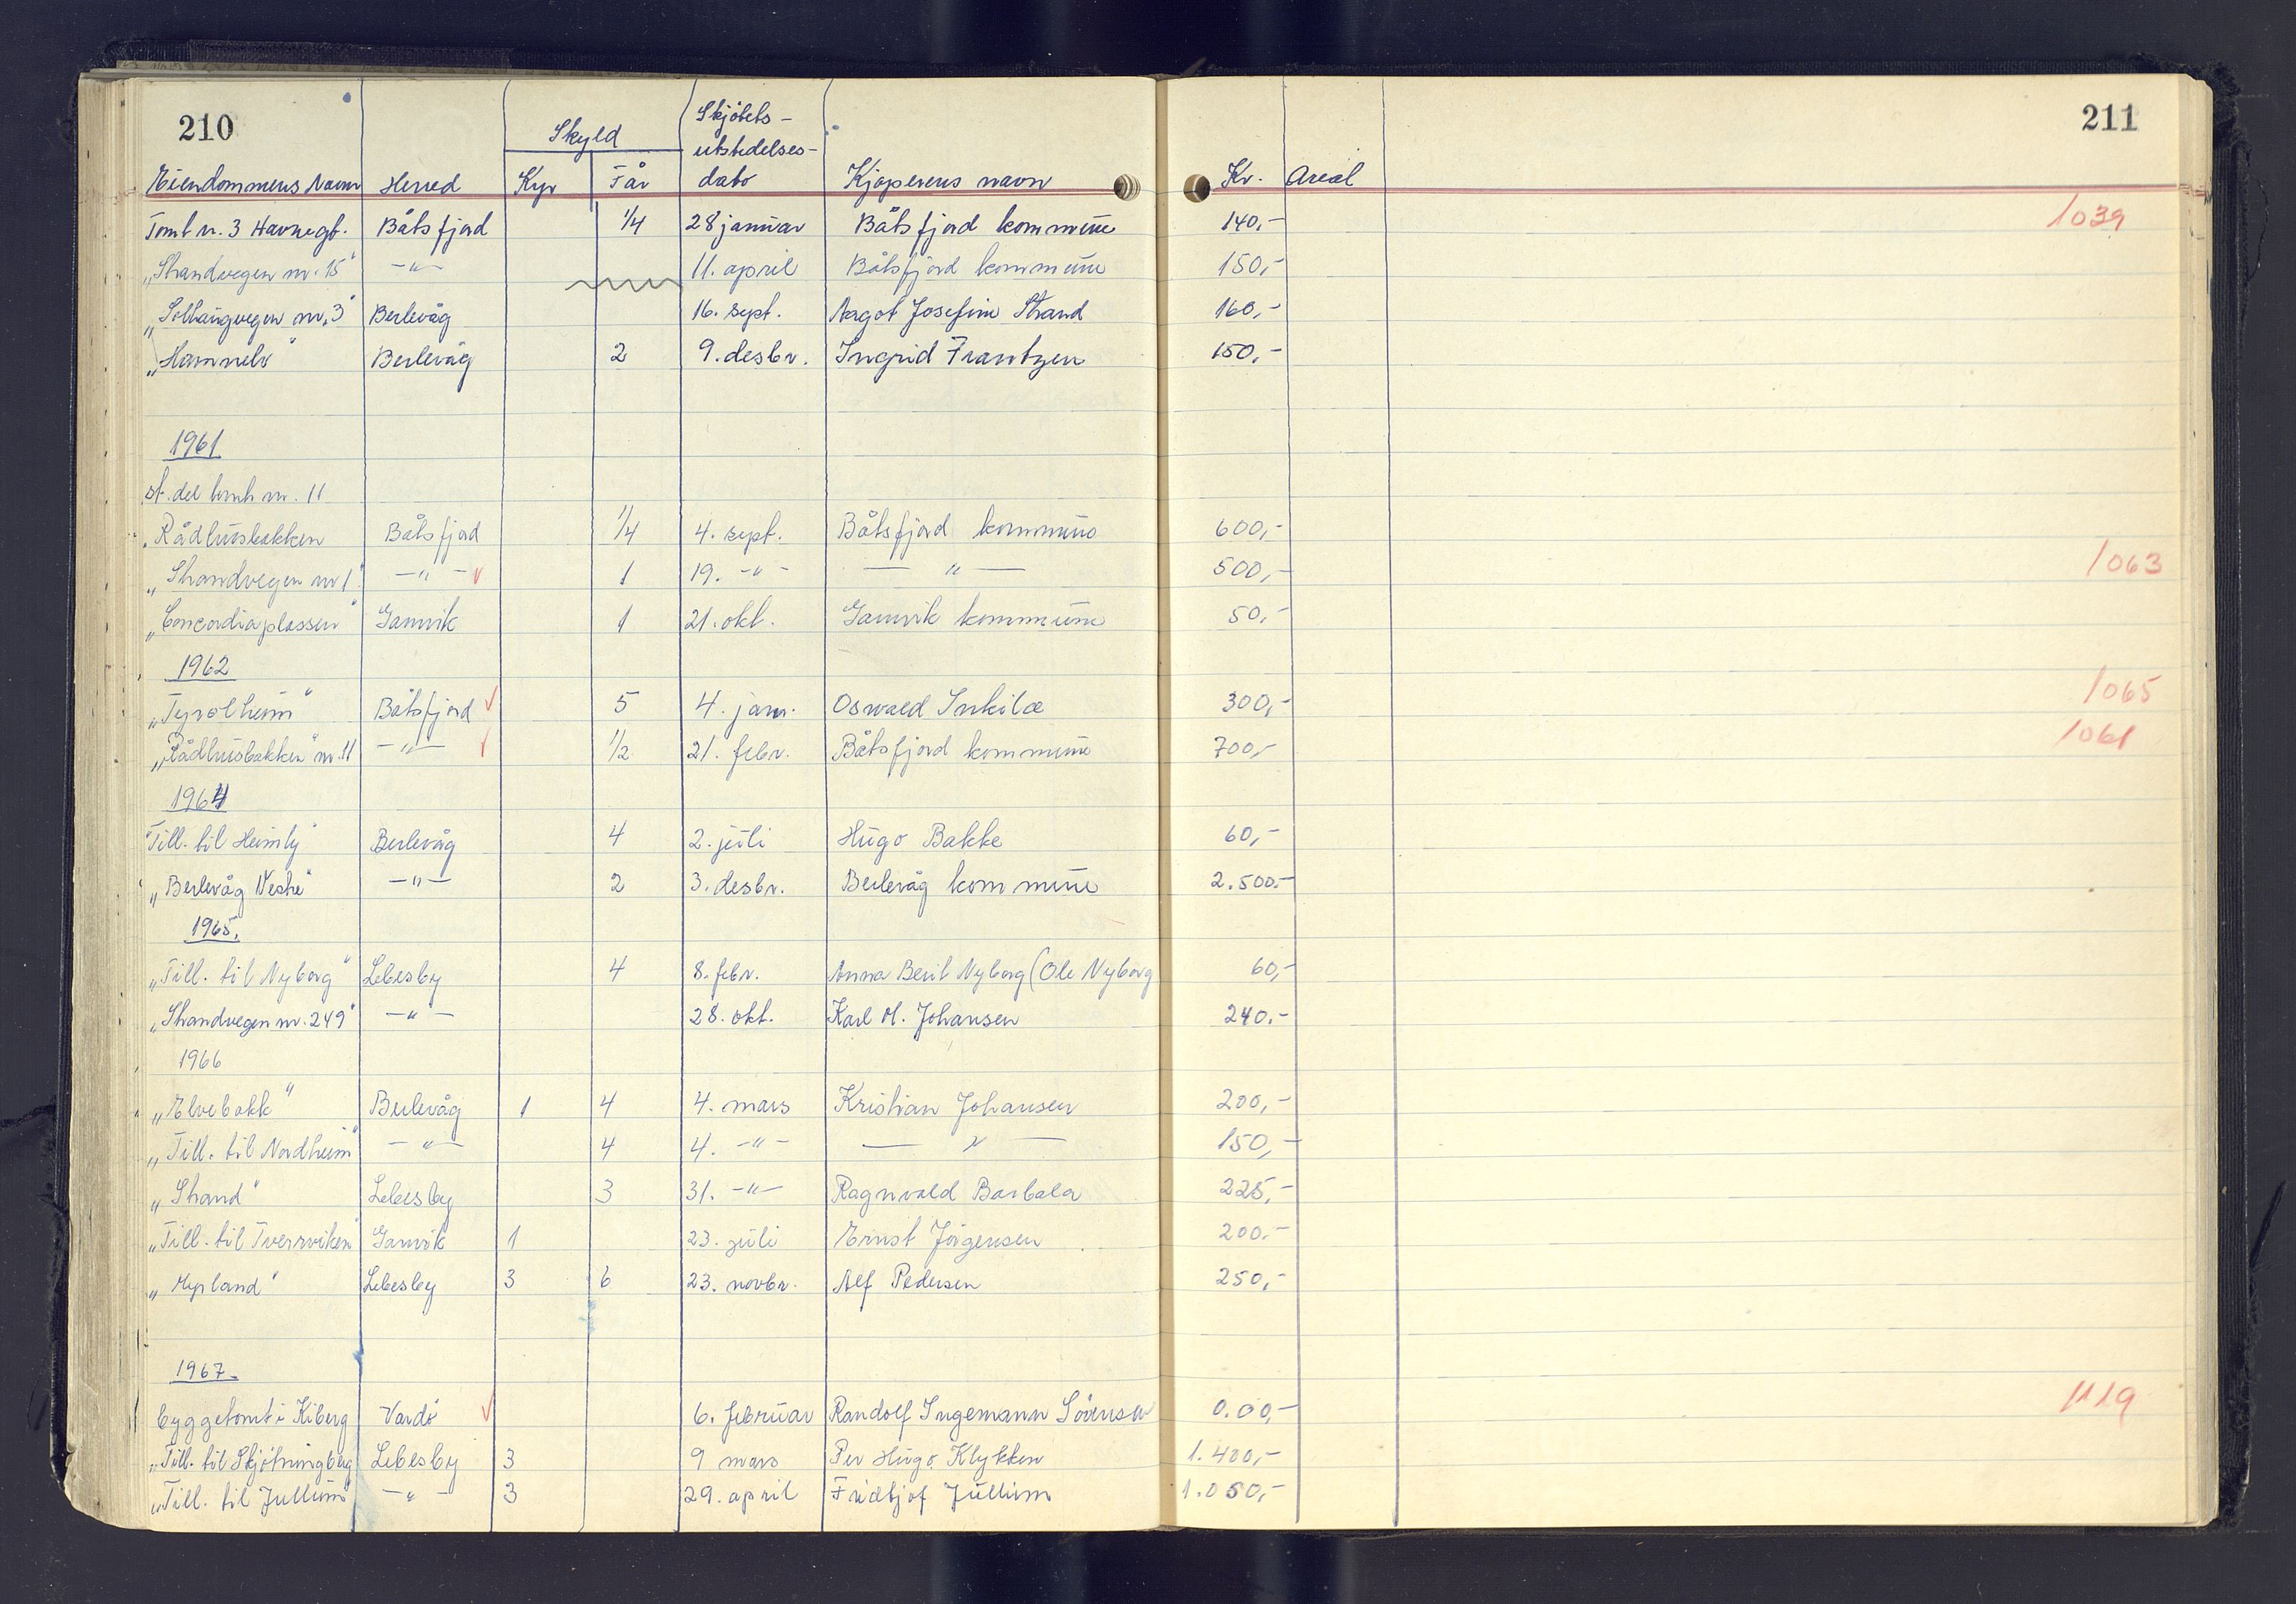 210
211
Skyld
Skjötets-
utstedelses-
Eiendommens Navn Herred Kyr Får dato Kjøperens navn Kr. Areal
Tomt nr. 3 Havnegt. Båtsfjord 1/4 28 januar Båtsfjord kommune 140,- 1039
„Strandvegen nr. 15" -"- 11. april Båtsfjord kommune 150,-
„Solhaugvegen nr. 3" Berlevåg 16. sept. Aagot Josefine Strand 160,-
„Hamnelv" Berlevåg 2 9. desbr. Ingrid Frantzen 150,-
1961
st. del tomt nr. 11
Rådhusbakken Båtsfjord 1/4 4. sept. Båtsfjord kommune 600,-
„Strandvegen nr 1" -"- 1 19. -"- -"- 500,- 1063
„Concordiaplassen" Gamvik 1 21. okt. Gamvik kommune 50,-
1962
„Tyrolheim" Båtsfjord 5 4. jan. Oswald Inkilæ 300,- 1065
„Rådhusbakken" nr. 11 -"- 1/2 21. febr. Båtsfjord kommune 700,- 1061
1964
"Till. til Heimly" Berlevåg 4 2. juli Hugo Bakke 60,-
„Berlevåg Vestre" -"- 2 3. desbr. Berlevåg kommune 2.500.-
1965.
„Till. til Nyborg" Lebesby 4 8. febr. Anna Berit Nyborg (Ole Nyborg 60,-
„Strandvegen nr. 249" -"- 28. okt. Karl M. Johansen 240.-
1966
„Elvebakk" Berlevåg 1 4 4. mars Kristian Johansen 200,-
„Till. til Nordheim" -"- 4 4. -"- -"- 150,-
„Strand" Lebesby 3 31. -"- Ragnvald Barbala 225,-
„Till. til Tverrviken" Gamvik 1 23. juli Ernst Jörgensen 200.-
„Myrland" Lebesby 3 6 23. novbr. Alf Pedersen 250,-
1967.
byggetomt i Kiberg Vardö 6. februar Randolf Ingemann Sörensen 0.00,- 1119
„Till. til Skjötningberg Lebesby 3 9 mars Per Hugo Klykken 1.400,-
„Till. til Jullum" -"- 3 29. april Fridtjof Jullum 1.050,-